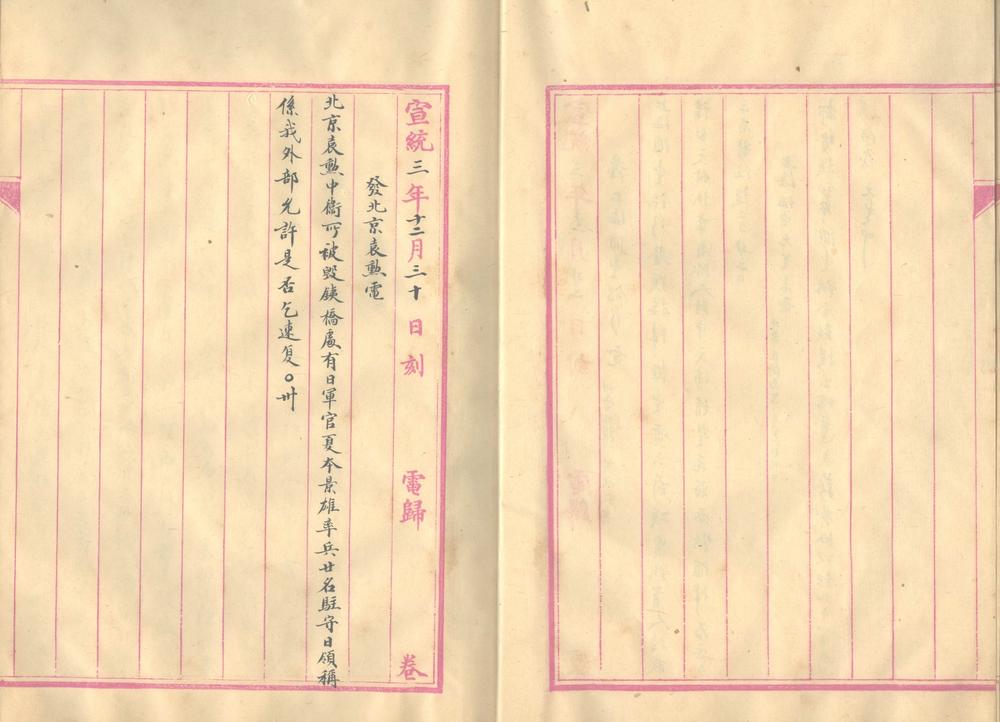 宣統三年十二月三十日刻 電歸 卷
發北京袁勲電
北京袁勲中衞所被毀鐵橋處有日軍官夏本景雄率兵廿名駐守日領稱
係我外部允許是否乞速复〇卅